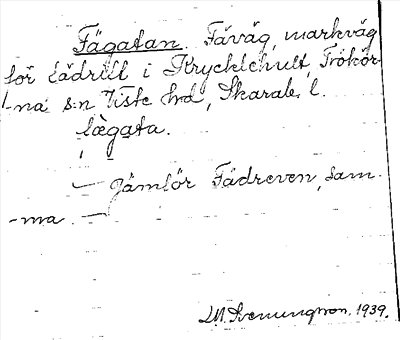 Fägatan. Fäväg, markväg
för fädrift i Krycklehult, Frökär-
na s:n Viste hd, Skarab. l.
fægata.
— Jämför Fädreven, sam-
ma. —
1939.